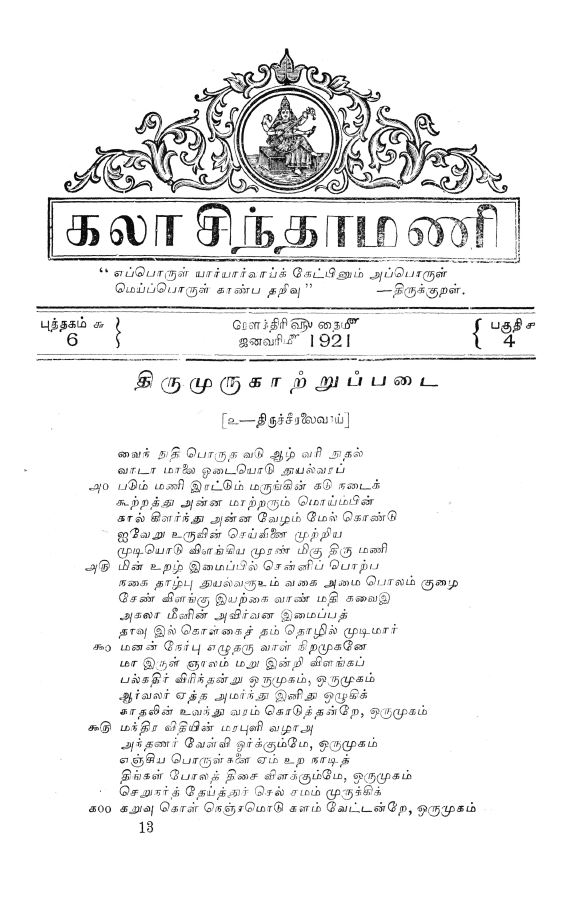 கலாசிந்தாமணி
“ எப்பொருள் யார்யார்வாய்க் கேட்பினும் அப்பொருள்
மெய்ப்பொருள் காண்ப தறிவு ” —திருக்குறள்.
புத்தகம் ௬
6
ரௌத்திரி௵ தைமீ
ஜனவரிமீ 1921
பகுதி ௪
4
திருமுருகாற்றுப்படை
[௨—திருச்சீரலைவாய்]
வைந் நுதி பொருத வடு ஆழ் வரி நுதல்
வாடா மாலை ஓடையொடு துயல்வரப்
௮௦ படும் மணி இரட்டும் மருங்கின் கடு நடைக்
கூற்றத்து அன்ன மாற்றரும் மொய்ம்பின்
கால் கிளர்ந்து அன்ன வேழம் மேல் கொண்டு
ஐவேறு உருவின் செய்வினை முற்றிய
முடியொடு விளங்கிய முரண் மிகு திரு மணி
௮௫ மின் உறழ் இமைப்பில் சென்னிப் பொற்ப
நகை தாழ்பு துயல்வரூஉம் வகை அமை பொலம் குழை
சேண் விளங்கு இயற்கை வாண் மதி கவைஇ
அகலா மீனின் அவிர்வன இமைப்பத்
தாவு இல் கொள்கைத் தம் தொழில் முடிமார்
௯௦ மனன் நேர்பு எழுதரு வாள் நிறமுகனே
மா இருள் ஞாலம் மறு இன்றி விளங்கப்
பல்கதிர் விரிந்தன்று ஒருமுகம், ஒருமுகம்
ஆர்வலர் ஏத்த அமர்ந்து இனிது ஒழுகிக்
காதலின் உவந்து வரம் கொடுத்தன்றே, ஒருமுகம்
௯௫ மந்திர விதியின் மரபுளி வழாஅ
அந்தணர் வேள்வி ஓர்க்கும்மே, ஒருமுகம்
எஞ்சிய பொருள்களை ஏம் உற நாடித்
திங்கள் போலத் திசை விளக்கும்மே, ஒருமுகம்
செறுநர்த் தேய்த்துச் செல் சமம் முருக்கிக்
௧௦௦ கறுவு கொள் நெஞ்சமொடு களம் வேட்டன்றே, ஒருமுகம்
13